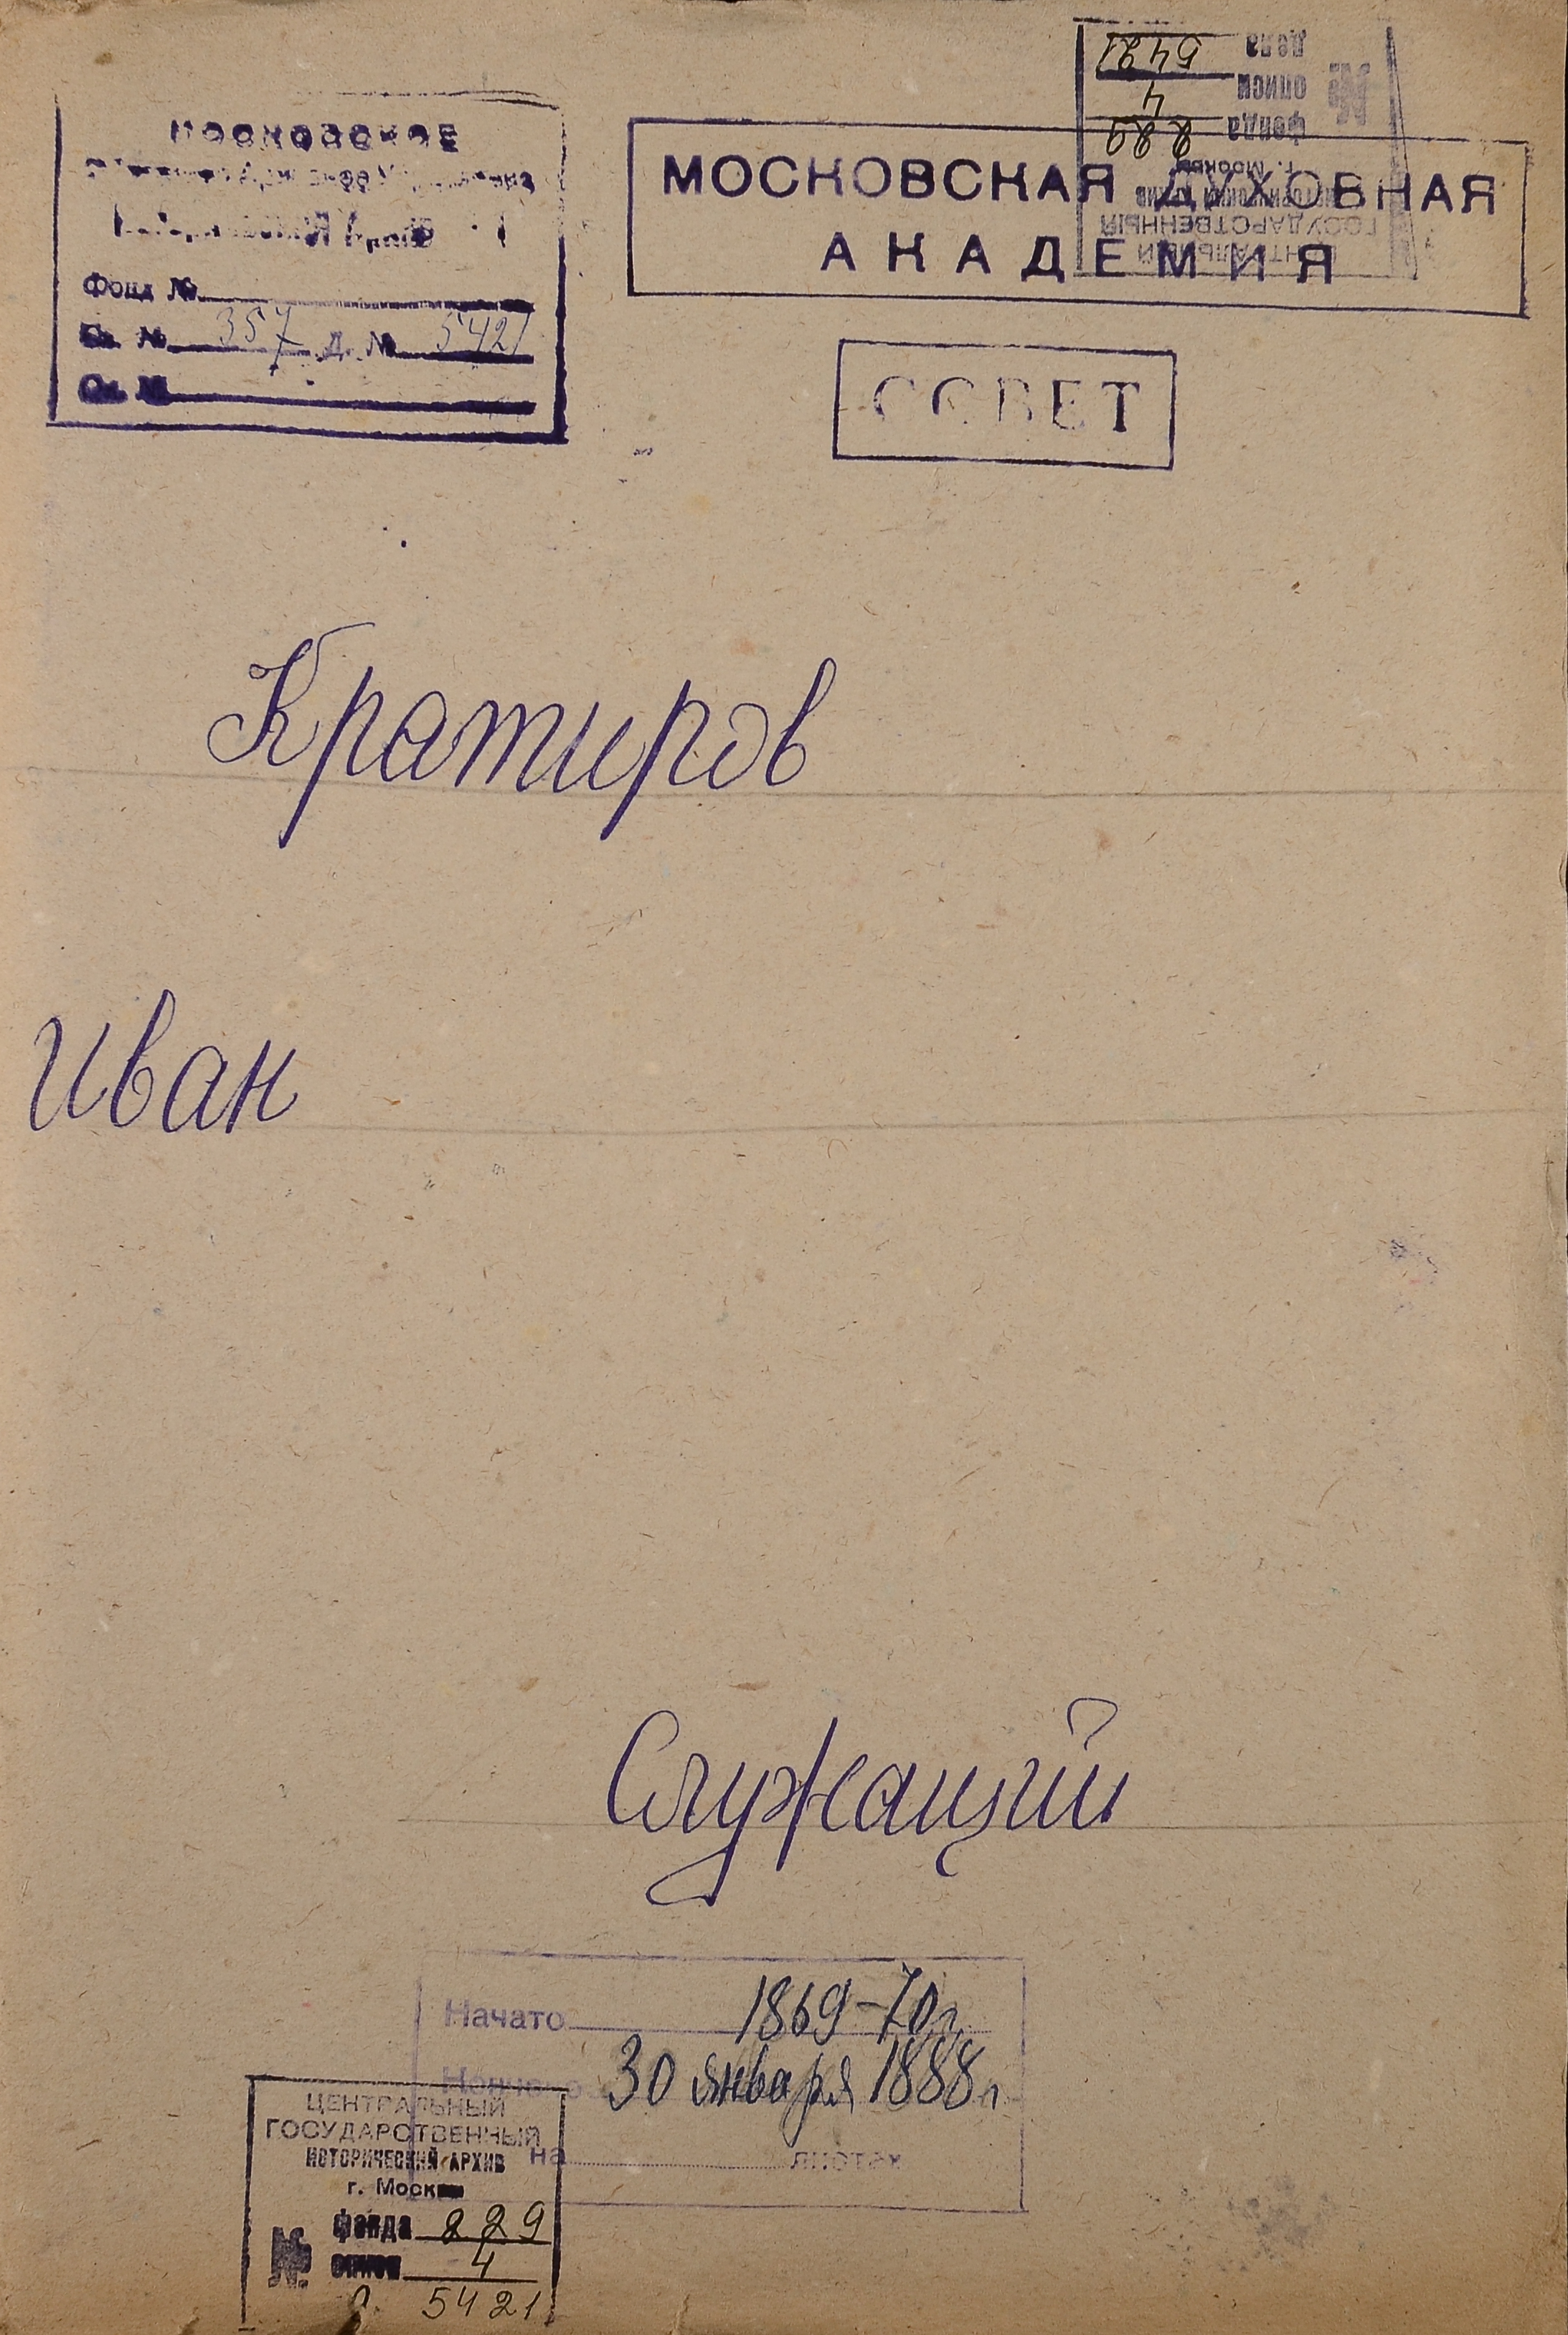 МОСКОВСКОЕ
Фонд №
Св. № 357 Д. № 5421
Оп. №
дела 5421
описи 4
фонда 229
№
г. Москвы
ГОСУДАРСТВЕННЫЙ
МОСКОВСКАЯ ДУХОВНАЯ
АКАДЕМИЯ
СОВЕТ
Кратиров
Иван
Служащий
Начато 1869-70 г.
30 января 1888 г.
на листах
ЦЕНТРАЛЬНЫЙ
ГОСУДАРСТВЕННЫЙ
ИСТОРИЧЕСКИЙ АРХИВ
г. Москвы
№ фонда 229
описи 4
д. 5421